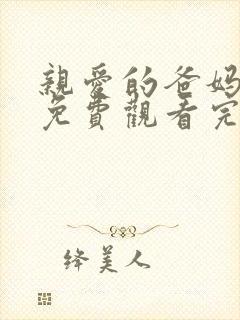 親愛的爸妈
免費觀看完
绛美人